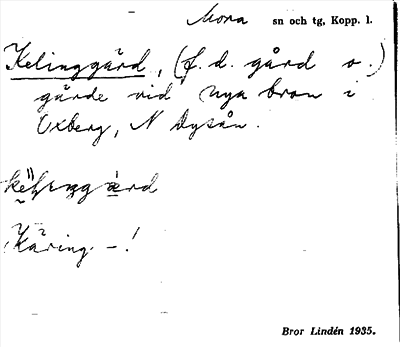 Mora sn och tg, Kopp. l.
Kelinggård, (f. d. gård o.)
gärde vid nya bron i
Oxberg, N Dysån.
gård
Käring - !
Bror Lindén 1935.